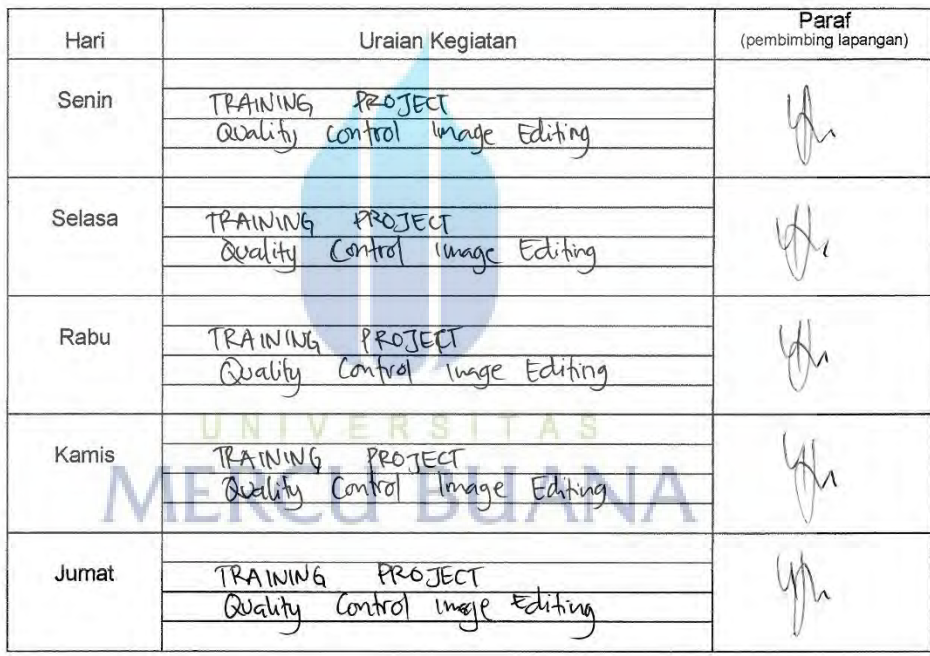 Hari Uraian Kegiatan Paraf
(pembimbing lapangan)
Senin TRAINING PROJECT
Quality control Image Editing
Selasa TRAINING PROJECT
Quality Control Image Editing
Rabu TRAINING PROJECT
Quality Control Image Editing
UNIVERSITAS
Kamis TRAINING PROJECT
Quality Control Image Editing
MERCU BUANA
Jumat TRAINING PROJECT
Quality Control Image Editing